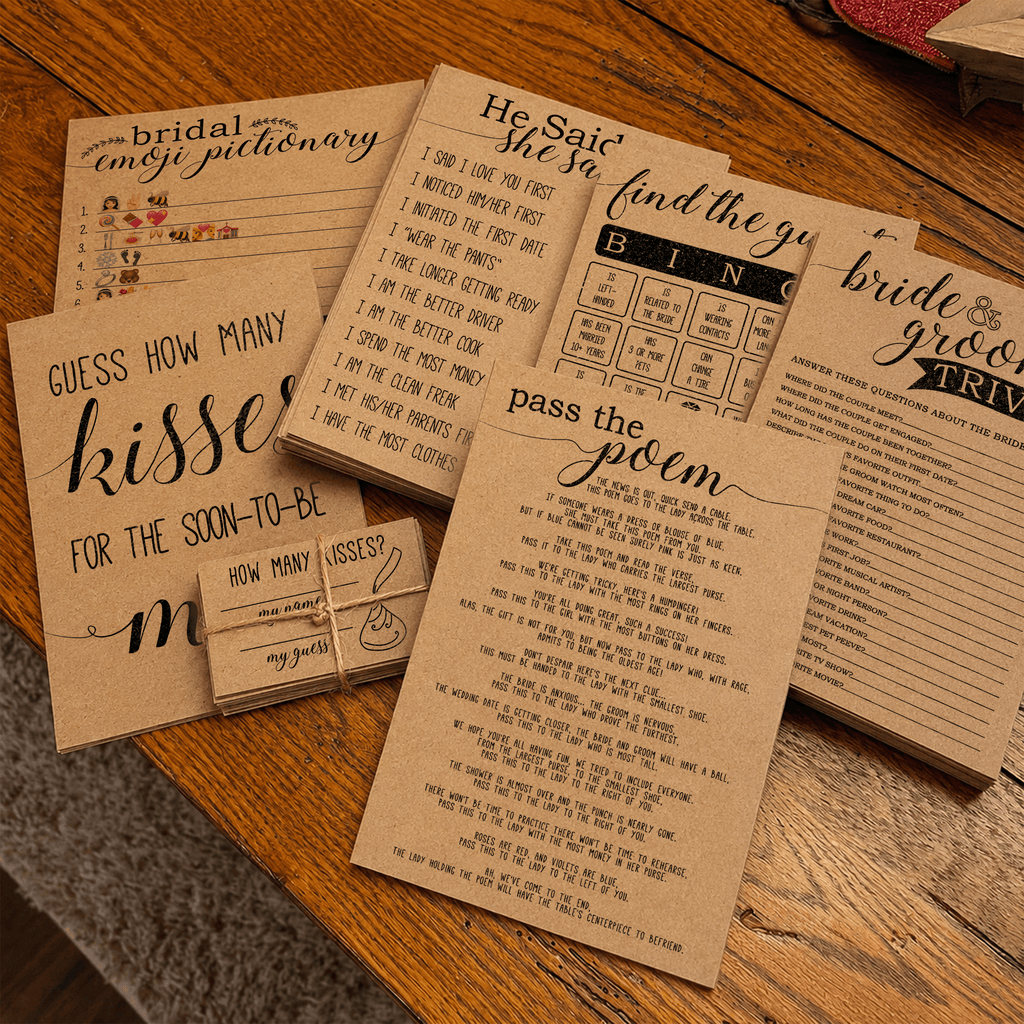 bridal
emoji pictionary
1.
2.
3.
4.
5.
6
He Said
she sa
I SAID I LOVE YOU FIRST
I NOTICED HIM/HER FIRST
I INITIATED THE FIRST DATE
I "WEAR THE PANTS"
I TAKE LONGER GETTING READY
I AM THE BETTER DRIVER
I AM THE BETTER COOK
I SPEND THE MOST MONEY
I AM THE CLEAN FREAK
I MET HIS/HER PARENTS FIR
I HAVE THE MOST CLOTHES
find the gu
B I N G
IS
LEFT-
HANDED
IS
RELATED TO
THE BRIDE
IS
WEARING
CONTACTS
CAN
MORE
LAN
HAS BEEN
MARRIED
10+ YEARS
HAS
3 OR MORE
PETS
CAN
CHANGE
A TIRE
IS
IS THE
bride &
groo
TRIV
ANSWER THESE QUESTIONS ABOUT THE BRIDE
WHERE DID THE COUPLE MEET?
WHERE DID THE COUPLE GET ENGAGED?
HOW LONG HAS THE COUPLE BEEN TOGETHER?
WHAT DID THE COUPLE DO ON THEIR FIRST DATE?
DESCRIBE
'S FAVORITE OUTFIT
GROOM WATCH MOST OFTEN?
FAVORITE THING TO DO?
DREAM CAR?
FAVORITE FOOD?
FAVORITE RESTAURANT?
WORK?
FIRST JOB?
FAVORITE MUSICAL ARTIST?
FAVORITE BAND?
OR NIGHT PERSON?
FAVORITE DRINK?
DREAM VACATION?
PET PEEVE?
MOST?
TV SHOW?
MOVIE?
GUESS HOW MANY
kisses
FOR THE SOON-TO-BE
m
HOW MANY KISSES?
my name
my guess
pass the
poem
THE NEWS IS OUT, QUICK SEND A CABLE.
THIS POEM GOES TO THE LADY ACROSS THE TABLE.
IF SOMEONE WEARS A DRESS OF BLOUSE OF BLUE,
SHE MUST TAKE THIS POEM FROM YOU.
BUT IF BLUE CANNOT BE SEEN SURELY PINK IS JUST AS KEEN.
TAKE THIS POEM AND READ THE VERSE.
PASS IT TO THE LADY WHO CARRIES THE LARGEST PURSE.
WE'RE GETTING TRICKY, HERE'S A HUMDINGER!
PASS THIS TO THE LADY WITH THE MOST RINGS ON HER FINGERS.
YOU'RE ALL DOING GREAT, SUCH A SUCCESS!
PASS THIS TO THE GIRL WITH THE MOST BUTTONS ON HER DRESS.
ALAS, THE GIFT IS NOT FOR YOU, BUT NOW PASS TO THE LADY WHO, WITH RAGE,
ADMITS TO BEING THE OLDEST AGE!
DON'T DESPAIR HERE'S THE NEXT CLUE...
THIS MUST BE HANDED TO THE LADY WITH THE SMALLEST SHOE.
THE BRIDE IS ANXIOUS... THE GROOM IS NERVOUS.
PASS THIS TO THE LADY WHO DROVE THE FURTHEST.
THE WEDDING DATE IS GETTING CLOSER, THE BRIDE AND GROOM WILL HAVE A BALL,
PASS THIS TO THE LADY WHO IS MOST TALL.
WE HOPE YOU'RE ALL HAVING FUN, WE TRIED TO INCLUDE EVERYONE.
FROM THE LARGEST PURSE, TO THE SMALLEST SHOE,
PASS THIS TO THE LADY TO THE RIGHT OF YOU.
THE SHOWER IS ALMOST OVER AND THE PUNCH IS NEARLY GONE.
PASS THIS TO THE LADY TO THE RIGHT OF YOU.
THERE WON'T BE TIME TO PRACTICE THERE WON'T BE TIME TO REHEARSE,
PASS THIS TO THE LADY WITH THE MOST MONEY IN HER PURSE.
ROSES ARE RED, AND VIOLETS ARE BLUE,
PASS THIS TO THE LADY TO THE LEFT OF YOU.
AH, WE'VE COME TO THE END,
THE LADY HOLDING THE POEM WILL HAVE THE TABLE'S CENTERPIECE TO BEFRIEND.